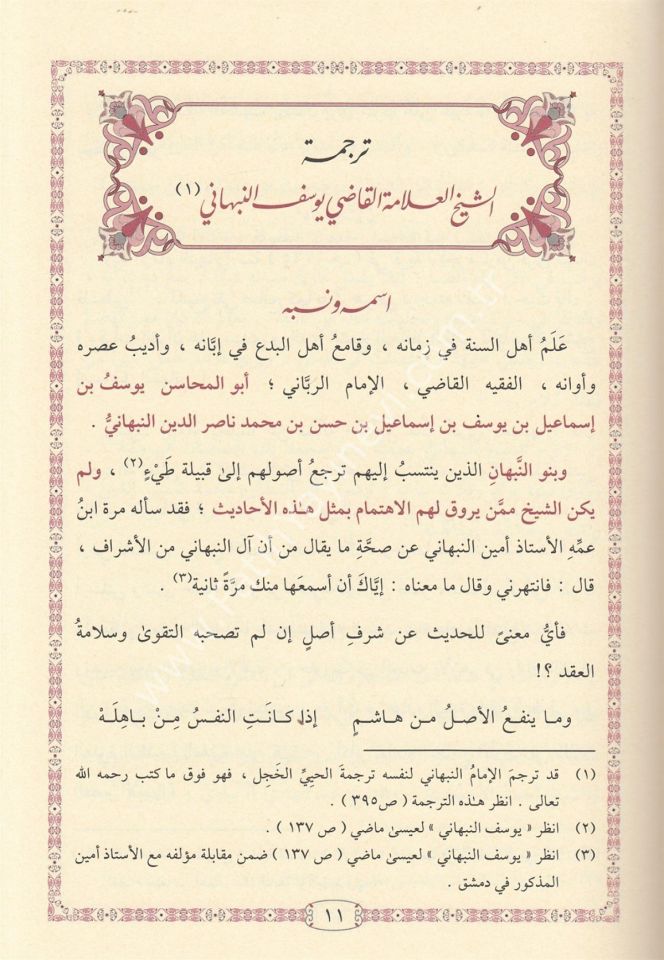 ترجمة
الشيخ العلامة القاضي يوسف النبهاني (١)
اسمه ونسبه
عَلَمُ أهل السنة في زمانه ، وقامعُ أهل البدع في إبَّانه ، وأديبُ عصره
وأوانه ، الفقيه القاضي ، الإمام الربَّاني ؛ أبو المحاسن يوسفُ بن
إسماعيل بن يوسف بن إسماعيل بن حسن بن محمد ناصر الدين النبهانيُّ .
وبنو النَّبهانِ الذين ينتسبُ إليهم ترجعُ أصولهم إلىٰ قبيلة طَيْءٍ(٢) ، ولم
يكن الشيخ ممَّن يروق لهم الاهتمام بمثل هـٰذه الأحاديث ؛ فقد سأله مرة ابنُ
عمِّهِ الأستاذ أمين النبهاني عن صحَّةِ ما يقال من أن آل النبهاني من الأشراف ،
قال : فانتهرني وقال ما معناه : إيَّاكَ أن أسمعَها منك مرَّةً ثانية(٣) .
فأيُّ معنىً للحديث عن شرفِ أصلٍ إن لم تصحبه التقوىٰ وسلامةُ
العقد ؟!
وما ينفعُ الأصلُ من هاشمٍ إذا كانَتِ النفسُ مِنْ باهِلَهْ
(١) قد ترجم الإمامُ النبهاني لنفسه ترجمةَ الحيِيِّ الخَجِل ، فهو فوق ما كتب رحمه الله
تعالى . انظر هـٰذه الترجمة ( ص٣٩٥ ) .
(٢) انظر « يوسف النبهاني » لعيسىٰ ماضي ( ص ١٣٧ ) .
(٣) انظر « يوسف النبهاني » لعيسىٰ ماضي ( ص ١٣٧ ) ضمن مقابلة مؤلفه مع الأستاذ أمين
المذكور في دمشق .
١١